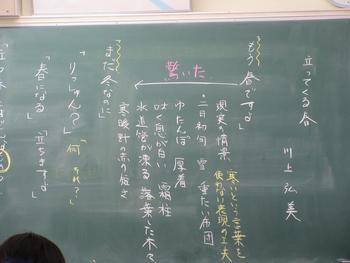 立ってくる春
川上弘美
「もう春ですよ」
現実の情景
寒いという言葉を
使わない表現の工夫
二月初旬 雪 重たい布団
ゆたんぽ 厚着
吐く息が白い 霜柱
水道管が凍る 落葉した木々
寒暖計の赤が短く
驚いた
「まだ冬なのに」
「りっしゅん?」
「何それ?」
「春になる」
「立ちますよ」